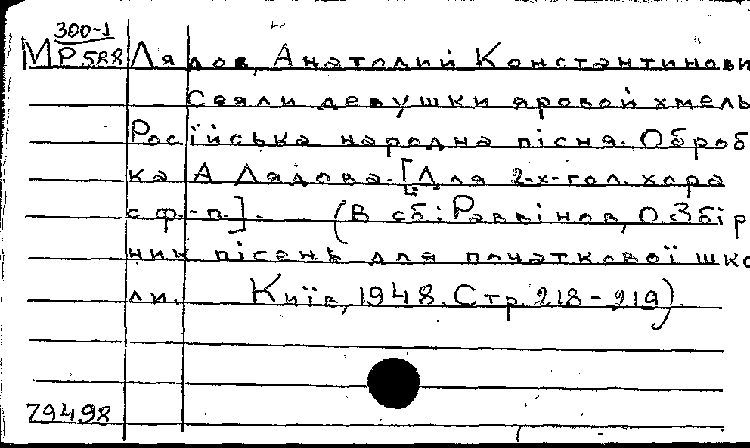 300-1
МР588 Лядов, Анатолий Константинови
Сеяли девушки яровой хмель
Російська народна пісня. Оброб
ка А Лядова. [Для 2-х-гол. хора
с ф.-п.]. — (В сб: Раввінов, О. Збір
ник пісень для початкової шко
ли. Київ, 1948. Стр. 218-219)
79498